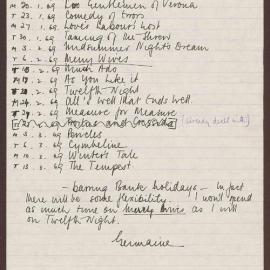 M 20. 1. 69 Two Gentlemen of Verona
T 23. 1. 69 Comedy of Errors
M 27. 1. 69 Love's Labour's Lost
T 30. 1. 69 Taming of the Shrew
M 3. 2. 69 Midsummer Night's Dream
T 6. 2. 69 Merry Wives
M 10. 2. 69 Much Ado
T 13. 2. 69 As You Like it
M 2. 69 Twelfth Night
M 24. 2. 69 All's Well that Ends Well
T 2. 69 Measure for Measure
Troilus and Cressida (already dealt with)
M 3. 3. 69 Pericles
T 6. 3. 69 Cymbeline
M 10. 3. 69 Winter's Tale
T 13. 3. 69 The Tempest
— barring Bank holidays — In fact
there will be some flexibility. I won't spend
as much time on Merry Wives as I will
on Twelfth Night.
Germaine